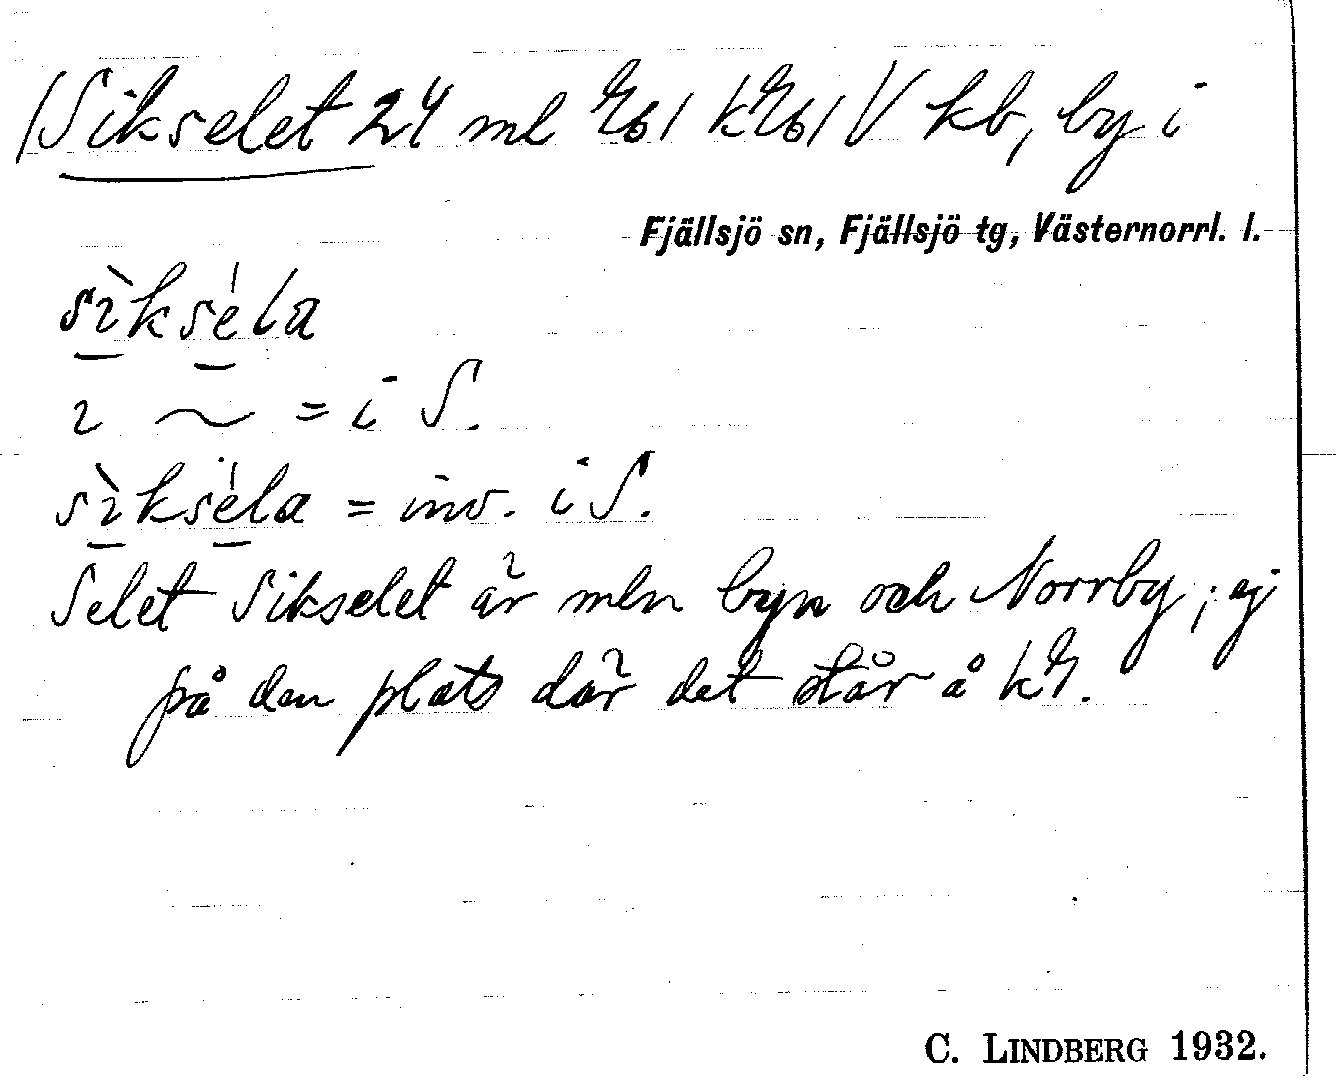 Sikselet 24 ml V kb, by i
Fjällsjö sn, Fjällsjö tg, Västernorrl. l.
sìkséla
ɩ ~ = i S.
sìkséla = inv. i S.
Selet Sikselet är mln byn och Norrby; ej
på den plats där det står å
C. LINDBERG 1932.